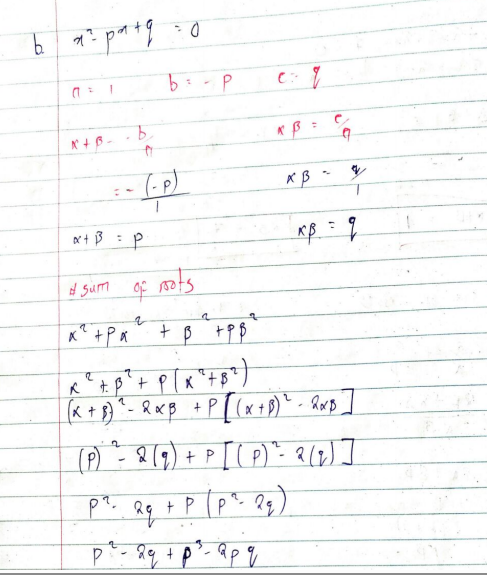 b. x² - px + q = 0
a = 1 b = - p c = q
α + β = - b/a αβ = c/a
= - (-p)/1 αβ = q/1
α + β = p αβ = q
# sum of roots
α² + pα² + β² + pβ²
α² + β² + p(α² + β²)
(α + β)² - 2αβ + p[(α + β)² - 2αβ]
(p)² - 2(q) + p[(p)² - 2(q)]
p² - 2q + p(p² - 2q)
p² - 2q + p³ - 2pq